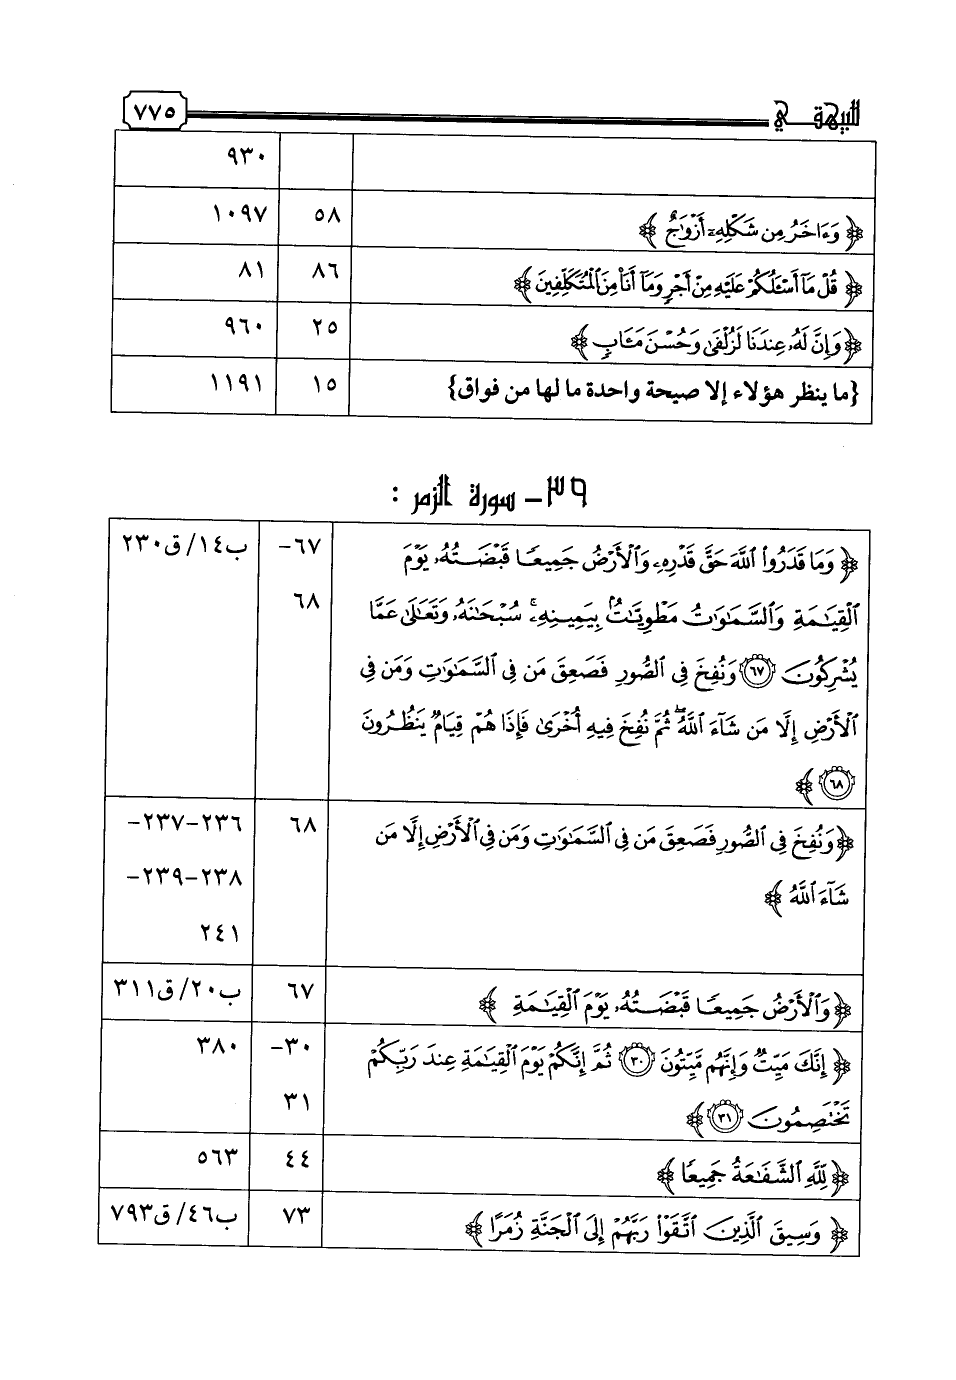 للبيهقي ٧٧٥
٩٣٠
﴿ وَءَاخَرُ مِن شَكْلِهِۦٓ أَزْوَٰجٌ ﴾ ٥٨ ١٠٩٧
﴿ قُلْ مَآ أَسْـَٔلُكُمْ عَلَيْهِ مِنْ أَجْرٍ وَمَآ أَنَا۠ مِنَ ٱلْمُتَكَلِّفِينَ ﴾ ٨٦ ٨١
﴿ وَإِنَّ لَهُۥ عِندَنَا لَزُلْفَىٰ وَحُسْنَ مَـَٔابٍ ﴾ ٢٥ ٩٦٠
{ما ينظر هؤلاء إلا صيحة واحدة ما لها من فواق} ١٥ ١١٩١
٣٩- سورة الزمر :
﴿ وَمَا قَدَرُوا۟ ٱللَّهَ حَقَّ قَدْرِهِۦ وَٱلْأَرْضُ جَمِيعًا قَبْضَتُهُۥ يَوْمَ ٦٧- ب١٤/ق٢٣٠
ٱلْقِيَـٰمَةِ وَٱلسَّمَـٰوَٰتُ مَطْوِيَّـٰتٌۢ بِيَمِينِهِۦ ۚ سُبْحَـٰنَهُۥ وَتَعَـٰلَىٰ عَمَّا ٦٨
يُشْرِكُونَ ﴿٦٧﴾ وَنُفِخَ فِى ٱلصُّورِ فَصَعِقَ مَن فِى ٱلسَّمَـٰوَٰتِ وَمَن فِى
ٱلْأَرْضِ إِلَّا مَن شَآءَ ٱللَّهُ ۖ ثُمَّ نُفِخَ فِيهِ أُخْرَىٰ فَإِذَا هُمْ قِيَامٌ يَنظُرُونَ
﴿٦٨﴾ ﴾
﴿ وَنُفِخَ فِى ٱلصُّورِ فَصَعِقَ مَن فِى ٱلسَّمَـٰوَٰتِ وَمَن فِى ٱلْأَرْضِ إِلَّا مَن ٦٨ ٢٣٦-٢٣٧-
شَآءَ ٱللَّهُ ﴾ ٢٣٨-٢٣٩-
٢٤١
﴿ وَٱلْأَرْضُ جَمِيعًا قَبْضَتُهُۥ يَوْمَ ٱلْقِيَـٰمَةِ ﴾ ٦٧ ب٢٠/ق٣١١
﴿ إِنَّكَ مَيِّتٌ وَإِنَّهُم مَّيِّتُونَ ﴿٣٠﴾ ثُمَّ إِنَّكُمْ يَوْمَ ٱلْقِيَـٰمَةِ عِندَ رَبِّكُمْ ٣٠- ٣٨٠
تَخْتَصِمُونَ ﴿٣١﴾ ﴾ ٣١
﴿ لِّلَّهِ ٱلشَّفَـٰعَةُ جَمِيعًا ﴾ ٤٤ ٥٦٣
﴿ وَسِيقَ ٱلَّذِينَ ٱتَّقَوْا۟ رَبَّهُمْ إِلَى ٱلْجَنَّةِ زُمَرًا ﴾ ٧٣ ب٤٦/ق٧٩٣